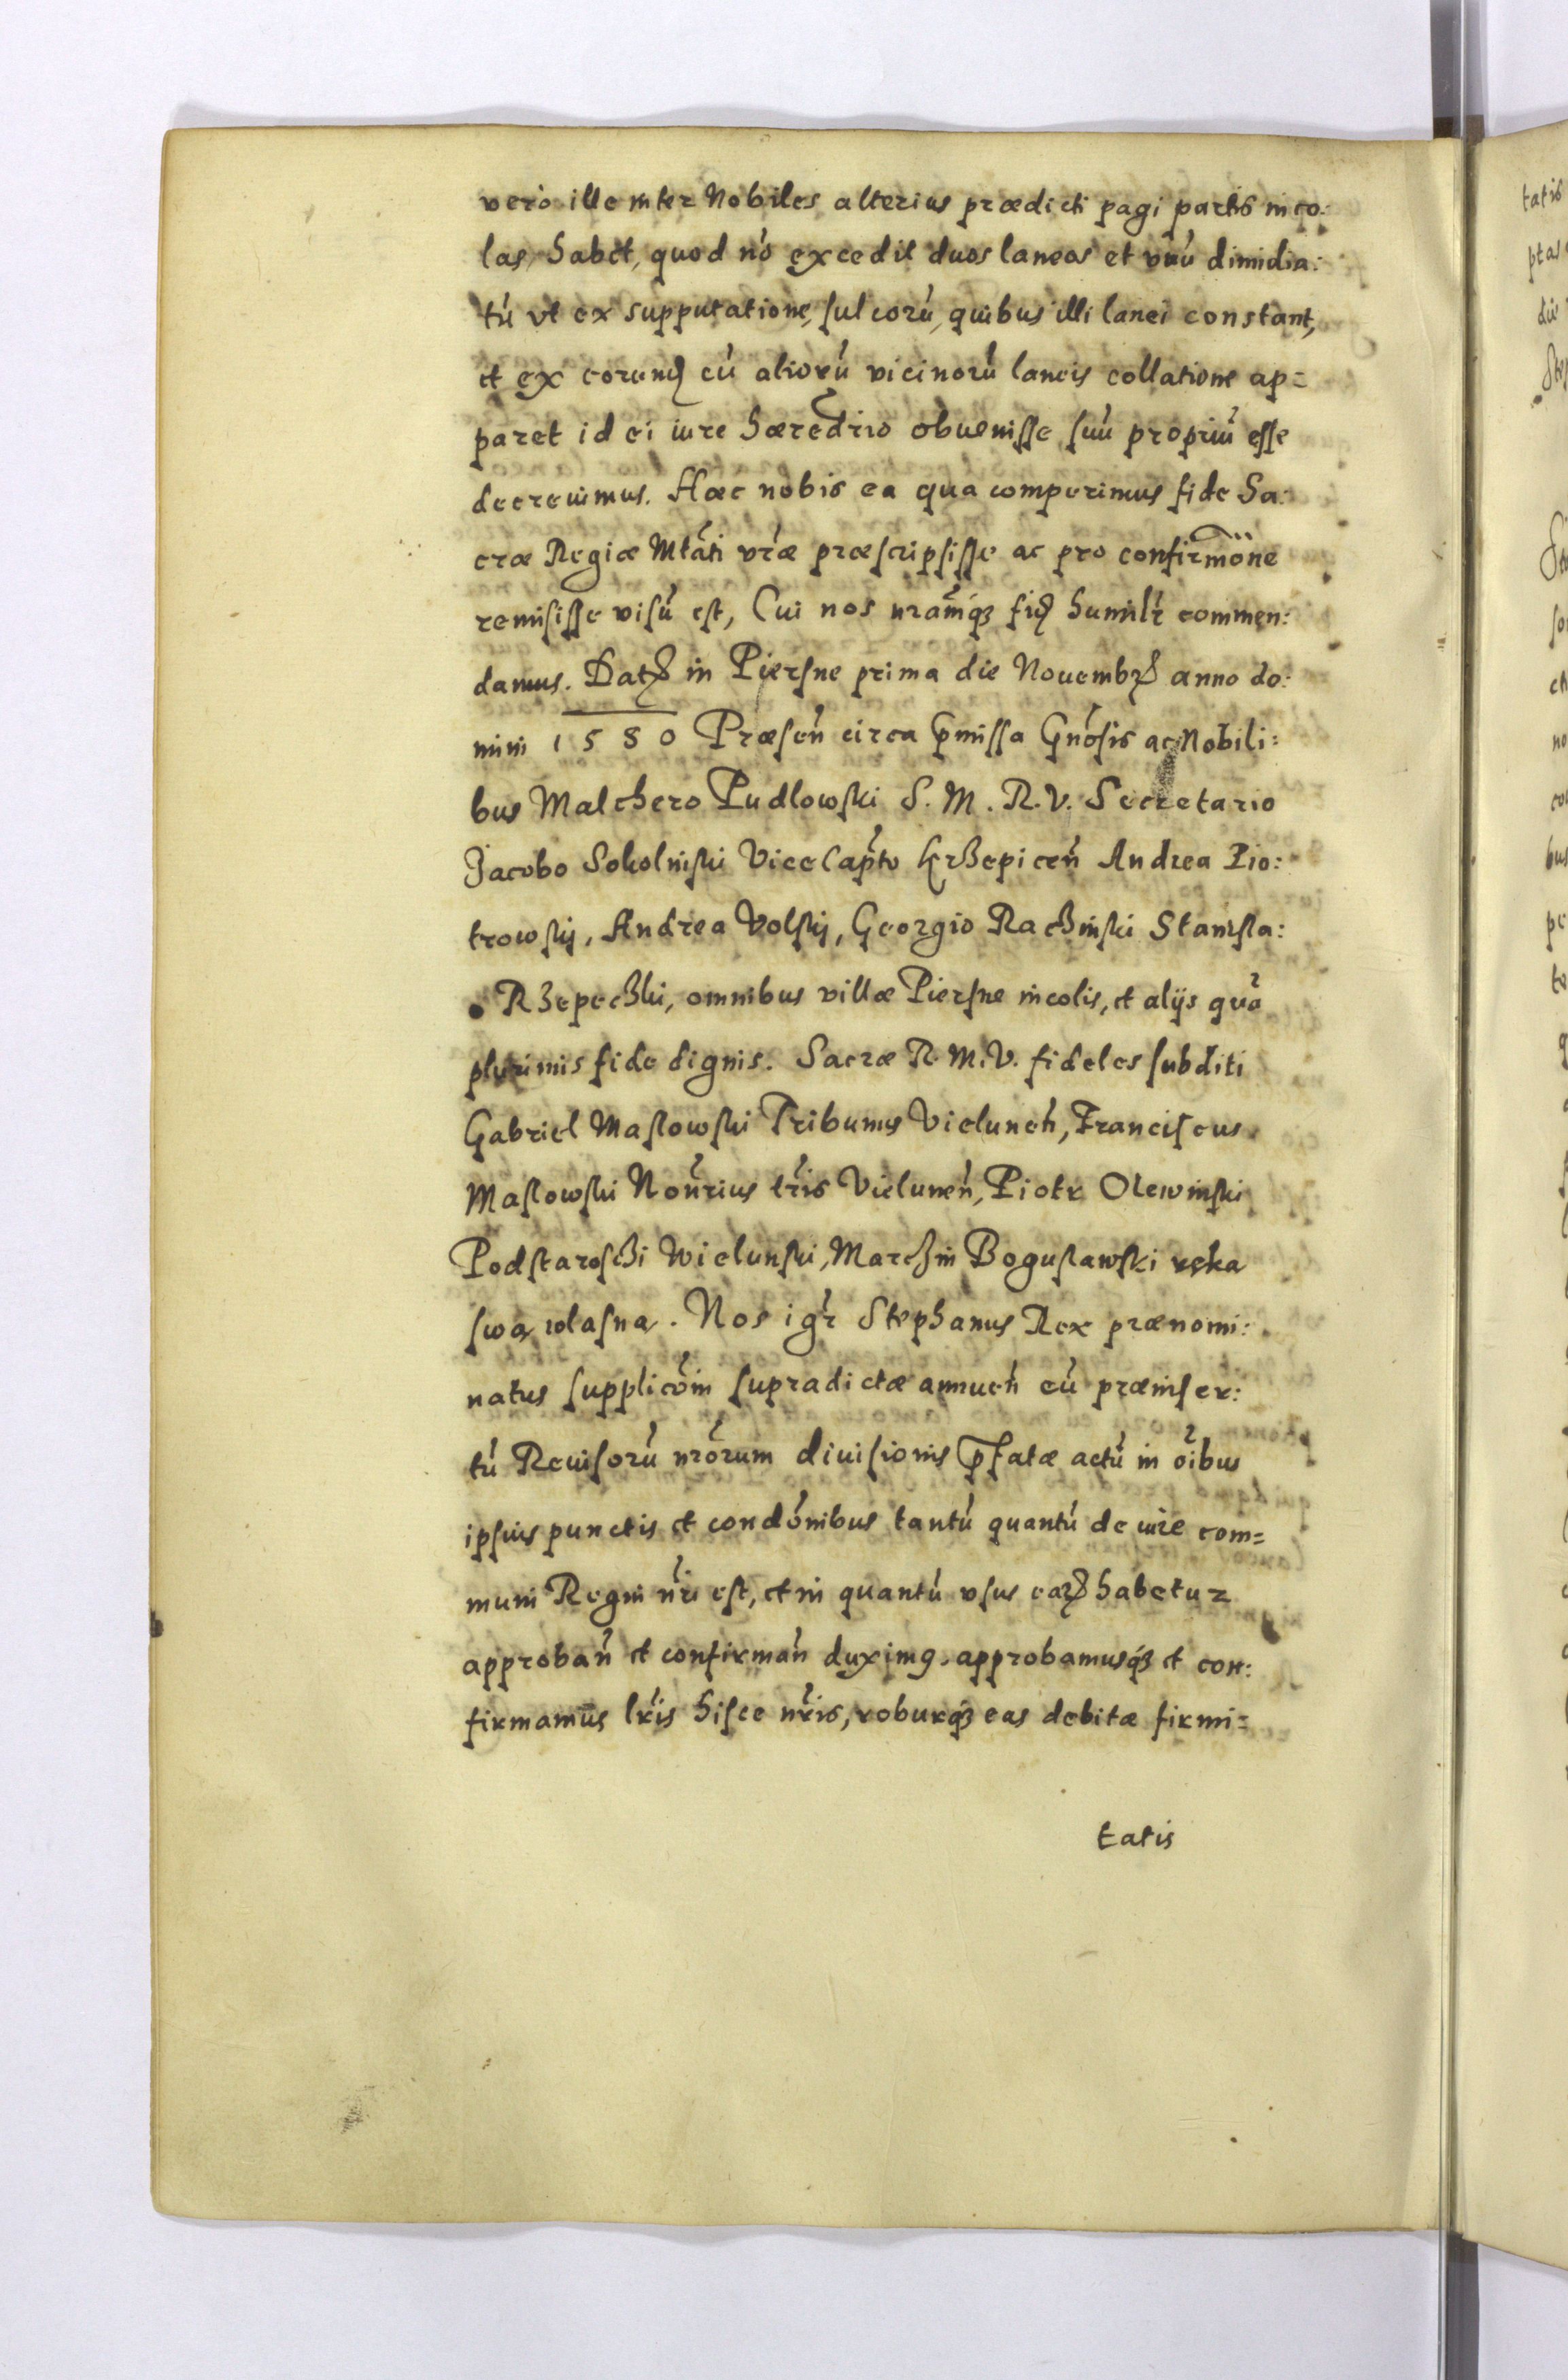 vero ille inter Nobiles alterius prædicti pagi partis inco:
las, habet, quod nō excedit duos laneos et vnū dimidia:
tū vt ex supputatione, sulcorū, quibus illi lanei constant,
et ex eorund cū aliorū vicinorū laneis collatione ap=
paret id ei iure hæredrio obuenisse suū propriū esse
decreuimus. Hæc nobis ea qua comperimus fide Sa:
cræ Regiæ Mtāti vræ præscripsisse ac pro confirmōne
remisisse visū est, Cui nos nramq3 fid humilr commen:
damus. Datꝫ in Piersne prima die Nouembrꝫ anno do:
mini 1580 Præsen circa pmissa Gnosis ac Nobili:
bus Malchero Pudlowski S. M. R. V. Secretario
Jacobo Sokolniski ViceCapto Krzepicen Andrea Pio:
trowskij, Andrea Volskij, Georgio Raczinski Stanisla:
Rzepeczki, omnibus villæ Piersne incolis, et alijs quā
plurimis fide dignis. Sacræ R. M. V. fideles subditi
Gabriel Maslowski Tribunus Vielunen, Franciscus
Maslowski Nōrius tris Vielunen, Piotr Olewinski
Podstaroschi Wielunski, Marczin Boguslawski ręka
swą wlasną. Nos igr Stephanus Rex prænomi:
natus supplicōni supradictæ annuen cū præinser:
tū Reuisorū nrōrum diuisionis pfatæ actū in oībus
ipsius punctis et condōnibus tantū quantū de iure com=
muni Regni nri est, et in quantū vsus earꝫ habetur
approban et confirman duximg, approbamusq3 et con:
firmamus lris hisce nris, roburq3 eas debitæ firmi=
tatis
tatis
ptas
die